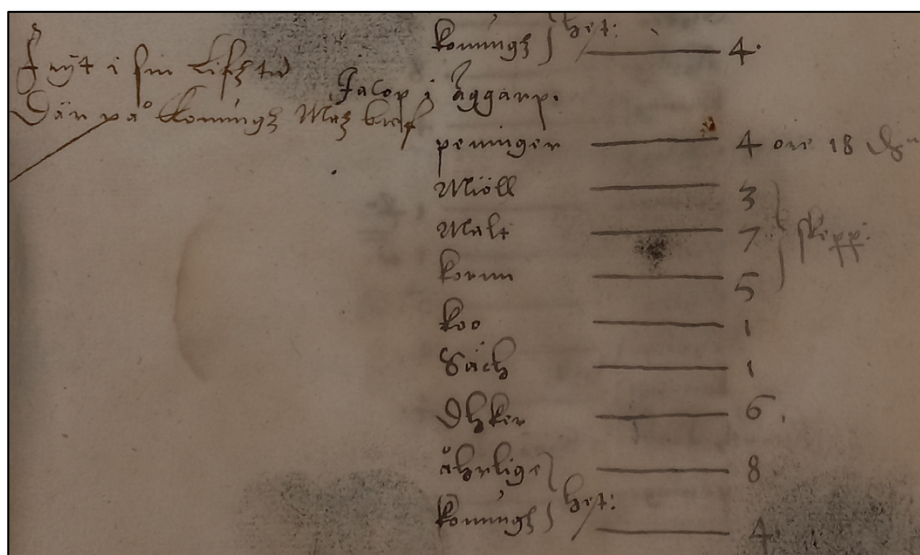 konungz } het: 4.
Frÿt i sin Lifztid
Där på konungz Maz breef
Jacop i Äggarp.
peninger 4 öre 18
Miöll 3
Malt 7 skepp:
kornn 5
koo 1
Däch 1
Öhker 6.
åhrlige 8
konungz } het: 4